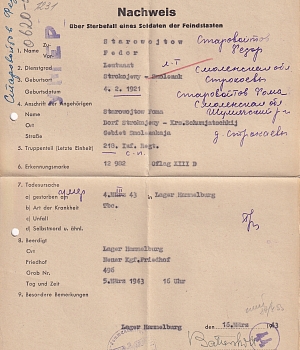 Nachweis
über Sterbefall eines Soldaten der Feindstaaten
1. Name
Starowojtow
Старовойтов
2. Vorname
Feder
Федор
3. Dienstgrad
Leutnant
л-т
Geburtsort
Strokojery - Smolensk
Смоленская обл
Строкоевы
Geburtsdatum
4. 2. 1921
4. Anschrift der Angehörigen
Starowojtow Foma
Старовойтов Фома
Ort
Dorf Strokojery - Kro.
Смоленская обл
Straße
Gebiet Smolenskaja
д. Строкоевы
5. Truppenteil (letzte Einheit)
210. Inf. Regt.
6. Erkennungsmarke
12 902 Oflag XIII D
7. Todesursache
умер
a) gestorben am
4. März 43 in Lager Hammelburg
b) Art der Krankheit
Tbc.
c) Unfall
d) Selbstmord u. ähnl.
8. Beerdigt
Ort
Lager Hammelburg
Friedhof
Neuer Kgf.Friedhof
Grab Nr.
496
Tag und Zeit
5.März 1943 16 Uhr
9. Besondere Bemerkungen
Lager Hammelburg, den 16.März 1943